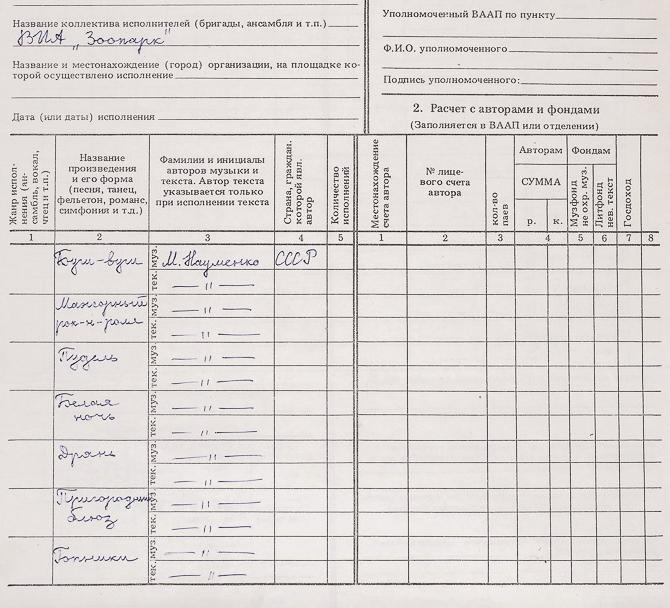 Название коллектива исполнителей (бригады, ансамбля и т.п.)
ВИА „Зоопарк"
Название и местонахождение (город) организации, на площадке ко-
торой осуществлено исполнение
Дата (или даты) исполнения
Уполномоченный ВААП по пункту
Ф.И.О. уполномоченного
Подпись уполномоченного:
2. Расчет с авторами и фондами
(Заполняется в ВААП или отделении)
Жанр испол-
нения (ан-
самбль, вокал,
чтец и т.п.)
Название
произведения
и его форма
(песня, танец,
фельетон, романс,
симфония и т.д.)
Фамилии и инициалы
авторов музыки и
текста. Автор текста
указывается только
при исполнении текста
Страна, граждан.
которой явл.
автор
Количество
исполнений
Местонахождение
счета автора
№ лице-
вого счета
автора
кол-во
паев
Авторам
СУММА
р. к.
Фондам
Музфонд
не охр. муз.
Литфонд
нев. текст
Госдоход
1 2 3 4 5 1 2 3 4 5 6 7 8
Буги-вуги муз. М. Науменко СССР
тек. — " —
Мажорный муз. — " —
рок-н-ролл тек. — " —
Пудель муз. — " —
тек. — " —
Белая муз. — " —
ночь тек. — " —
Дрянь муз. — " —
тек. — " —
Пригородный муз. — " —
блюз тек. — " —
Гопники муз. — " —
тек. — " —